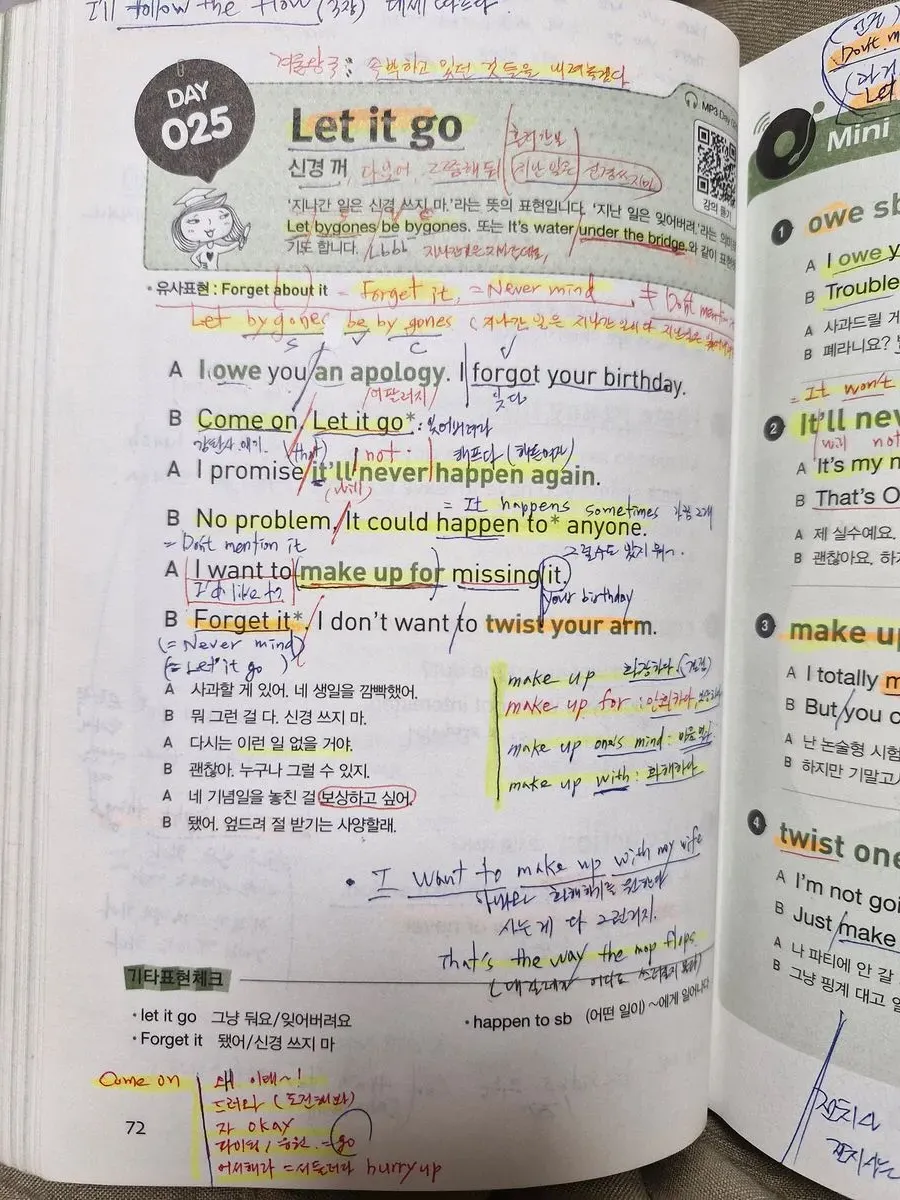 I'll follow the flow
겨울왕국 : 속박하고 있던 것들을 내려놓다
DAY
025
MP3 Day
Let it go
신경 꺼
지난 일은 신경쓰지마
강의 듣기
'지나간 일은 신경 쓰지 마.'라는 뜻의 표현입니다. '지난 일은 잊어버려.'라는
Let bygones be bygones. 또는 It's water under the bridge.와 같이
기도 합니다.
Lbbb
• 유사표현 : Forget about it = Forget it, = Never mind
Let by gones be by gones (지나간 일은 지나간 일이다
S V C
A I owe you an apology. I forgot your birthday.
잊다
B Come on. Let it go* : 잊어버려라
(that) not
A I promise it'll never happen again.
(will)
= It happens sometimes
B No problem. It could happen to* anyone.
= Don't mention it
그럴수도 있지 뭐~.
A I want to make up for missing it.
I'd like to
your birthday
B Forget it*. I don't want to twist your arm.
(= Never mind)
(= Let it go )
A 사과할 게 있어. 네 생일을 깜빡했어.
B 뭐 그런 걸 다. 신경 쓰지 마.
A 다시는 이런 일 없을 거야.
B 괜찮아. 누구나 그럴 수 있지.
A 네 기념일을 놓친 걸 보상하고 싶어.
B 됐어. 엎드려 절 받기는 사양할래.
make up 화장하다.
make up for : 만회하다,
make up one's mind :
make up with : 화해하다
• I want to make up with my wife
화해하기를 원한다
사는게 다 그런거지.
That's the way the mop flops
기타표현체크
• let it go 그냥 둬요/잊어버려요
• Forget it 됐어/신경 쓰지 마
• happen to sb (어떤 일이) ~에게 일어나다
Come on
왜 이래~!
드러와 (도전해봐)
자 okay
파이팅/ 응원 = go
어서해라 = 서둘러라 hurry up
72
Mini
1 owe sb
A I owe y
B Trouble
A 사과드릴 게
B 폐라니요?
= It won't
2 It'll nev
will not
A It's my n
B That's O
A 제 실수예요.
B 괜찮아요.
3 make up
A I totally m
B But you c
A 난 논술형 시험
B 하지만 기말고
4 twist one
A I'm not goi
B Just make
A 나 파티에 안 갈
B 그냥 핑계 대고 일